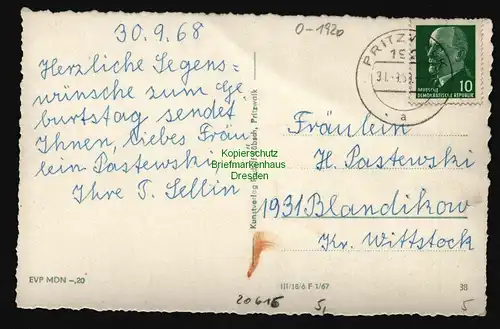 30.9.68
Herzliche Segens=
wünsche zum Ge
burtstag sendet
Ihnen, liebes Fräu
lein Pastewski
Ihre T. Sellin
O-1920
PRITZW
a
DEUTSCHE
DEMOKRATISCHE REPUBLIK
10
Fräulein
H. Pastewski
1931 Blandikow
Kr. Wittstock
Kopierschutz
Briefmarkenhaus
Dresden
Kunstverlag
Pritzwalk
EVP MDN –,20
III/18/6 F 1/67
38
20616
5,
5